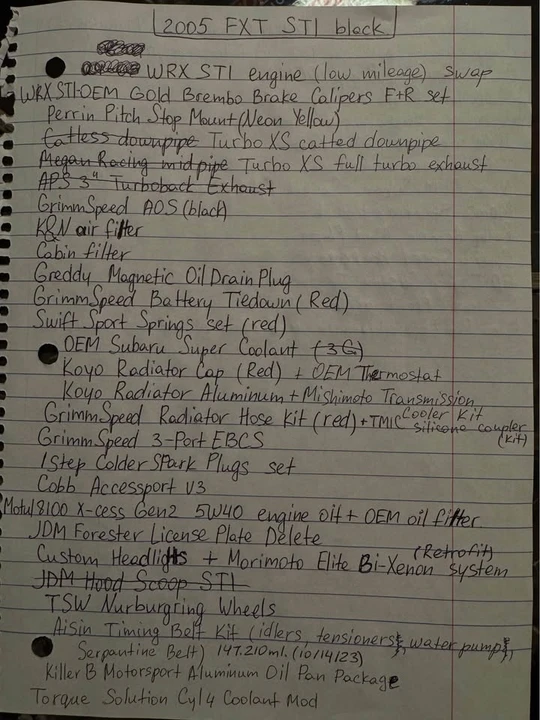 2005 FXT STI black
WRX STI engine (low mileage) swap
WRX STI OEM Gold Brembo Brake Calipers F+R set
Perrin Pitch Stop Mount (Neon Yellow)
Catless downpipe Turbo XS catted downpipe
Megan Racing midpipe Turbo XS full turbo exhaust
APS 3" Turboback Exhaust
GrimmSpeed AOS (black)
K&N air filter
Cabin filter
Greddy Magnetic Oil Drain Plug
GrimmSpeed Battery Tiedown (Red)
Swift Sport Springs set (red)
OEM Subaru Super Coolant (3G)
Koyo Radiator Cap (Red) + OEM Thermostat
Koyo Radiator Aluminum + Mishimoto Transmission
Cooler Kit
GrimmSpeed Radiator Hose Kit (red) + TMIC silicone coupler
(Kit)
GrimmSpeed 3-Port EBCS
1 Step Colder Spark Plugs set
Cobb Accessport V3
Motul 8100 X-cess Gen2 5W40 engine oil + OEM oil filter
JDM Forester License Plate Delete
(Retrofit)
Custom Headlights + Morimoto Elite Bi-Xenon system
JDM Hood Scoop STI
TSW Nurburgring Wheels
Aisin Timing Belt Kit (idlers, tensioners, water pump,
Serpantine Belt) 147.210mi. (10/14/23)
Killer B Motorsport Aluminum Oil Pan Package
Torque Solution Cyl 4 Coolant Mod